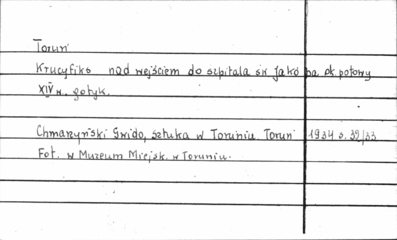 Toruń
Krucyfiks nad wejściem do szpitala św. Jakóba ok. połowy
XIV w. gotyk.
Chmarzyński Gwido, Sztuka w Toruniu. Toruń 1934 s. 32/33
Fot. w Muzeum Miejsk. w Toruniu.